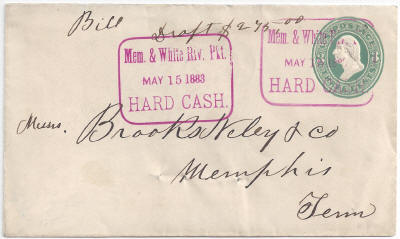 Bill Draft $275.00
Mem. & White Riv. Pkt.
MAY 15 1883
HARD CASH.
Mem. & White
MAY 1
HARD
U.S. POSTAGE
Messrs. Brooks Neley & co
Memphis
Tenn